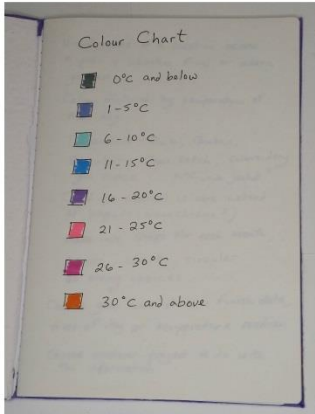 Colour Chart
0°C and below
1-5°C
6-10°C
11-15°C
16-20°C
21-25°C
26-30°C
30°C and above